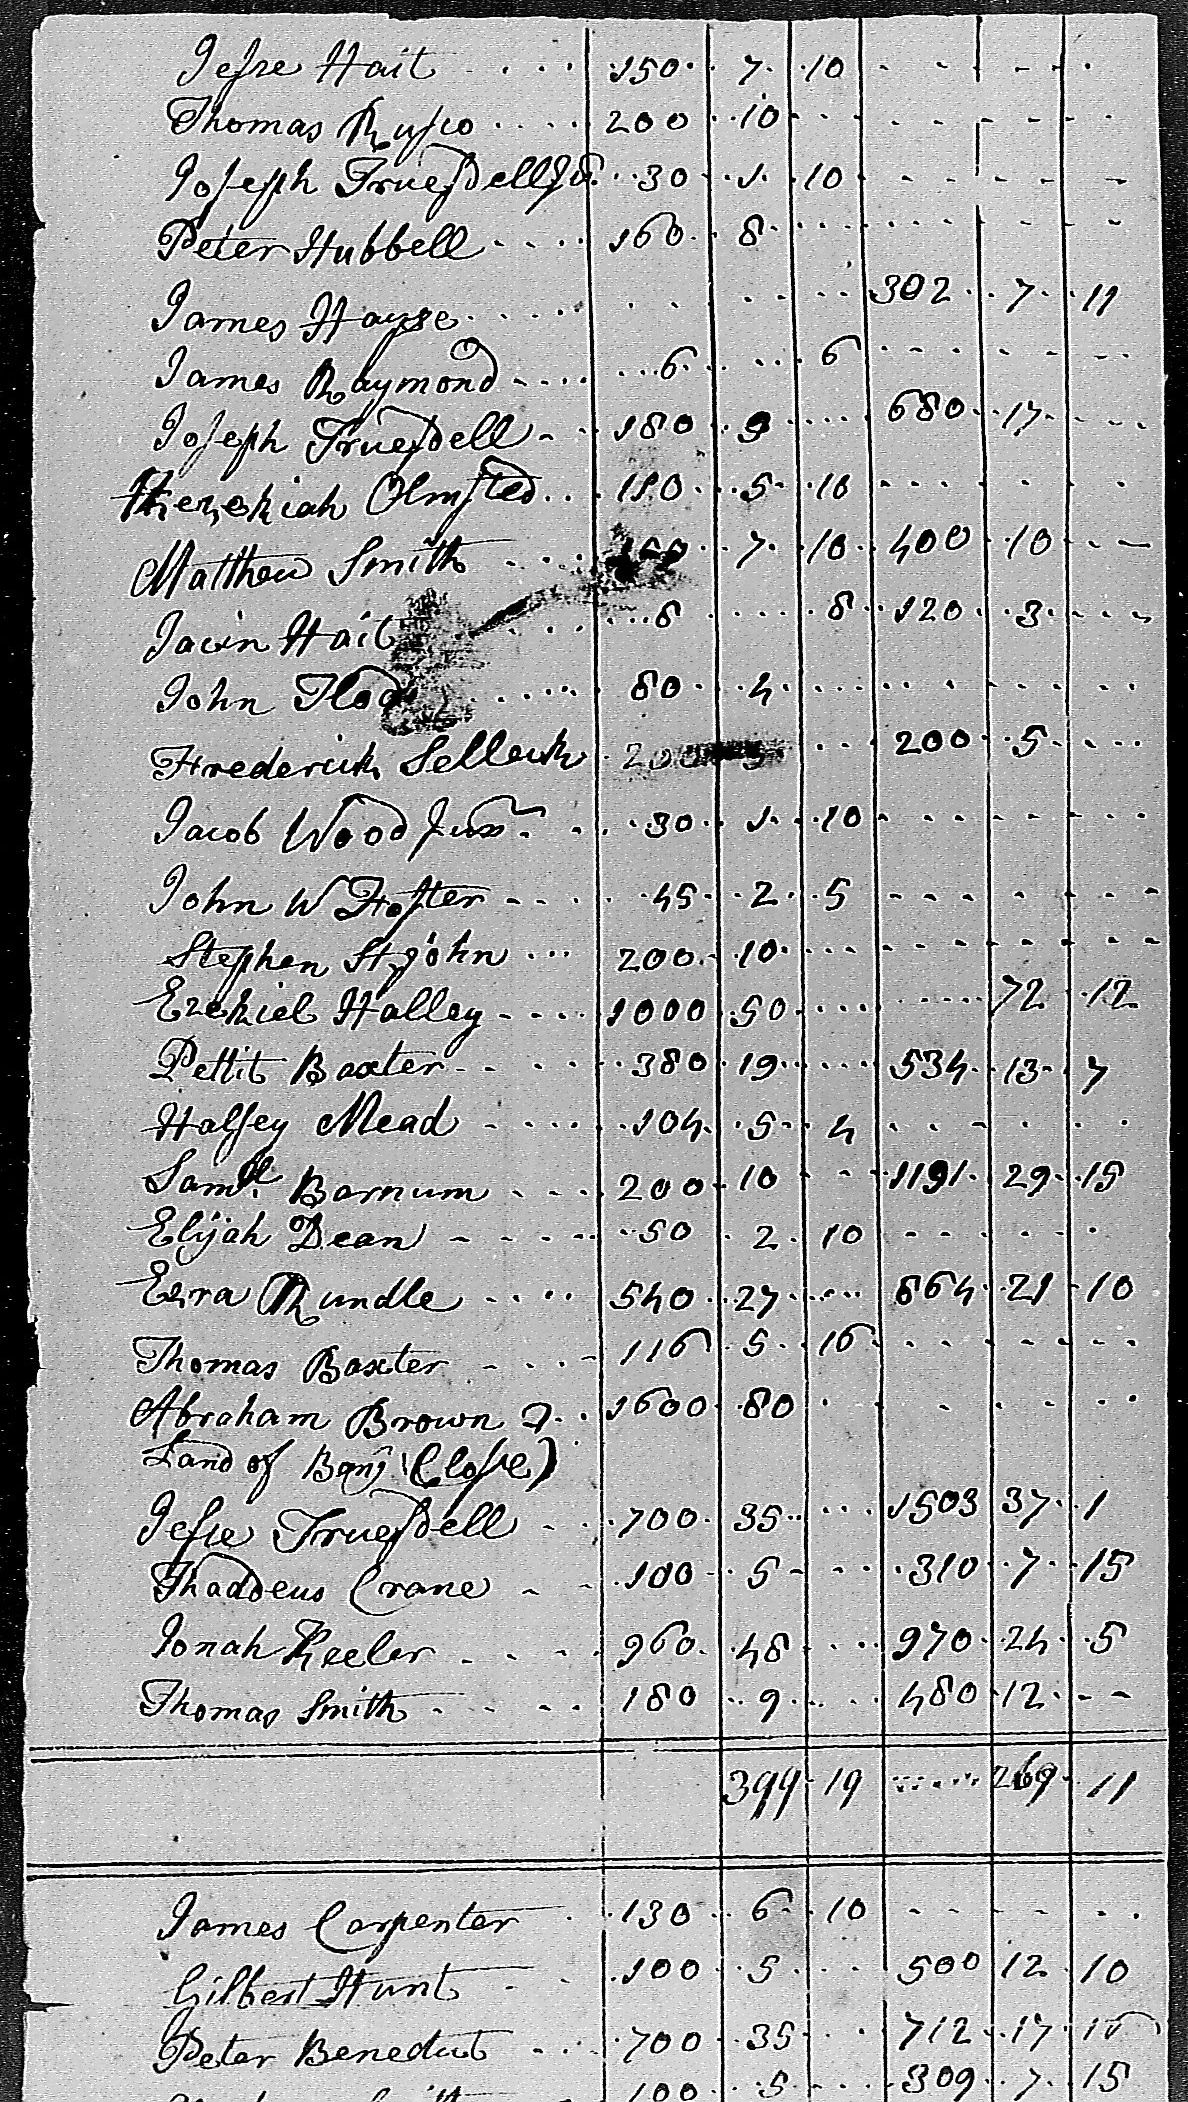 Jesse Hait 150 7 10
Thomas Rusco 200 10
Joseph Truesdell Jr. 30 1 10
Peter Hubbell 160 8
James Hayse 302 7 11
James Raymond 6 6
Joseph Truesdell 180 9 680 17
Hezekiah Olmsted 110 5 10
Matthew Smith 7 10 400 10
Jacin Hait 8 8 120 3
John 80 4
Frederick Selleck 200 200 5
Jacob Wood Junr. 30 1 10
John W Foster 45 2 5
Stephen St John 200 10
Ezekiel Halley 1000 50 72 12
Pettit Baxter 380 19 534 13 7
Halsey Mead 104 5 4
Saml. Barnum 200 10 1191 29 15
Elijah Dean 50 2 10
Ezra Rundle 540 27 864 21 10
Thomas Baxter 116 5 16
Abraham Brown 1600 80
Land of Benj Close)
Jesse Truesdell 700 35 1503 37 1
Thaddeus Crane 100 5 310 7 15
Jonah Keeler 960 48 970 24 5
Thomas Smith 180 9 480 12
399 19 269 11
James Carpenter 130 6 10
Gilbert Hunt 100 5 500 12 10
Peter Benedict 700 35 712 17
100 5 309 7 15